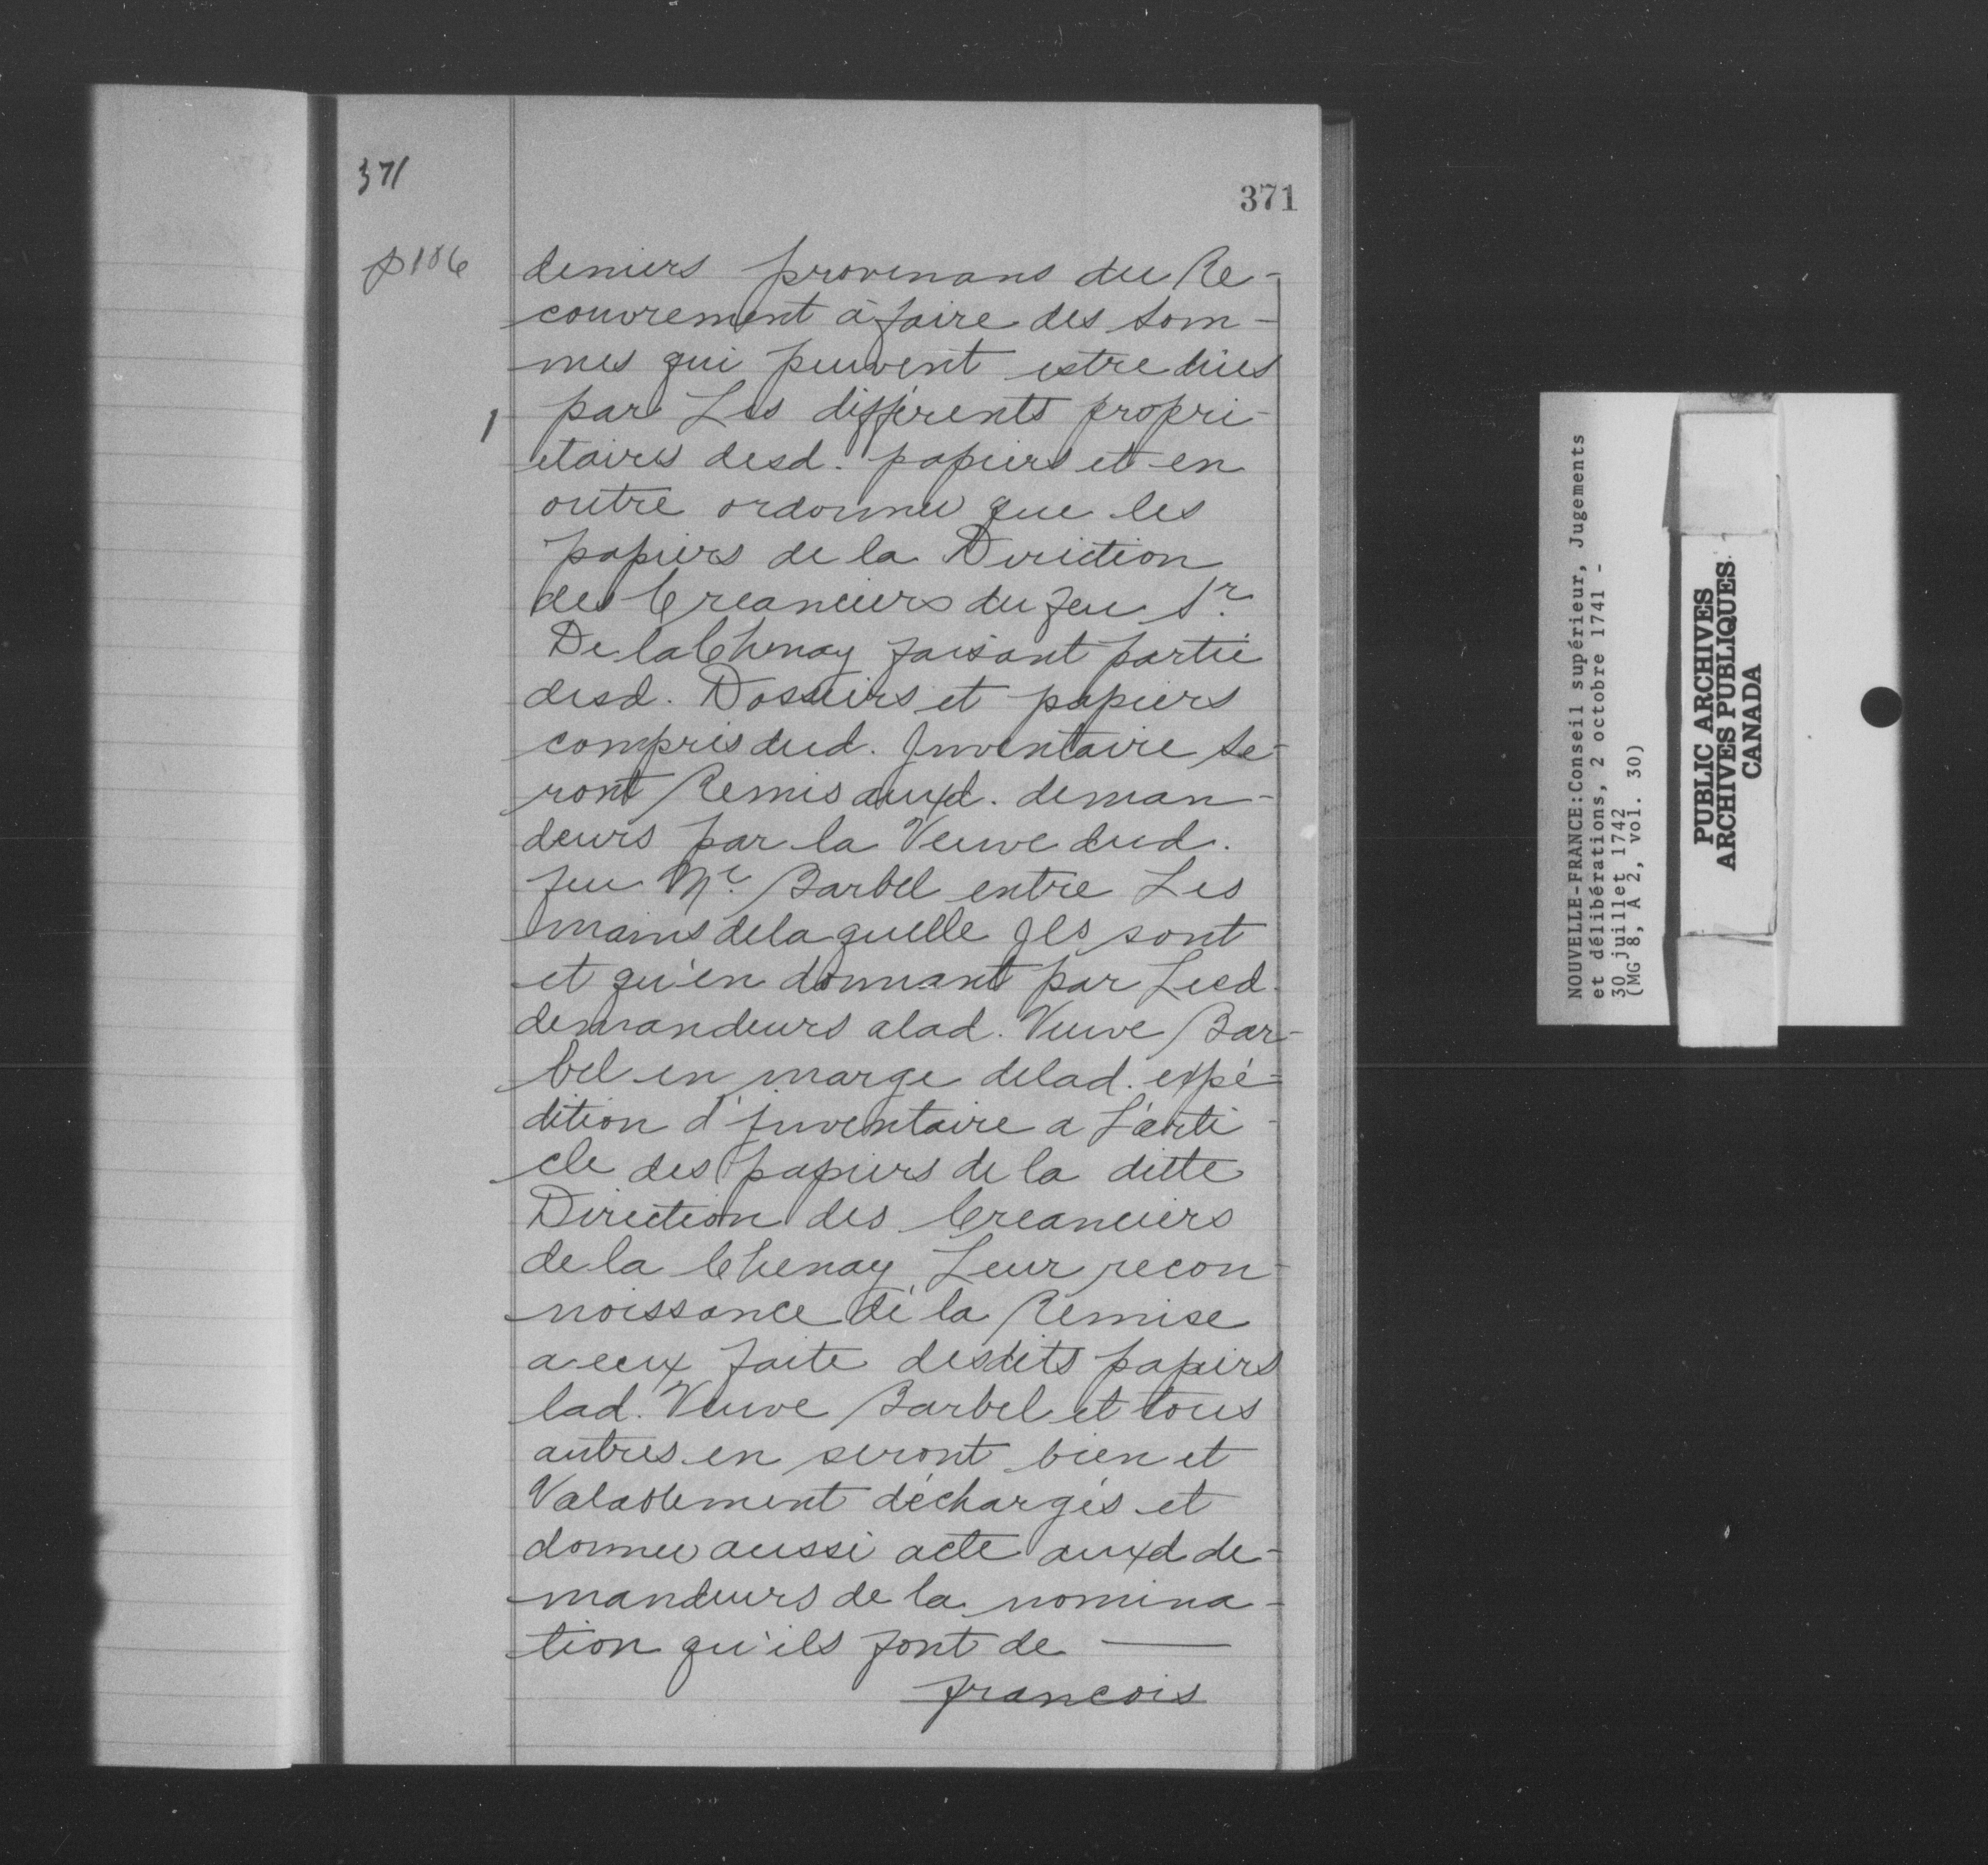 371
371
p 106
deniers provenans du Re-
couvrement à faire des som-
mes qui peuvent estre dües
par Les différents propri-
etaires desd. papiers et en
outre ordonner que les
papiers de la Direction
des Creanciers du feu Sr.
De la Chenay faisant partie
desd. Dossiers et papiers
compris dud. Inventaire se-
ront Remis auxd. deman-
deurs par la Veuve dud.
feu Me. Barbel entre Les
mains delaquelle Ils sont
et qu'en donnant par Lesd.
demandeurs alad. Veuve Bar-
bel en marge delad. expé-
dition d'Inventaire a L'arti-
cle des papiers de la ditte
Direction des Creanciers
de la Chenay Leur recon-
noissance de la Remise
a eux faite desdits papiers
lad. Veuve Barbel et tous
autres en seront bien et
Valablement déchargés et
donner aussi acte auxd de-
mandeurs de la nomina-
tion qu'ils font de
francois
NOUVELLE-FRANCE:Conseil supérieur, Jugements
et délibérations, 2 octobre 1741 -
30 juillet 1742
(MG 8, A 2, vol. 30)
PUBLIC ARCHIVES
ARCHIVES PUBLIQUES
CANADA